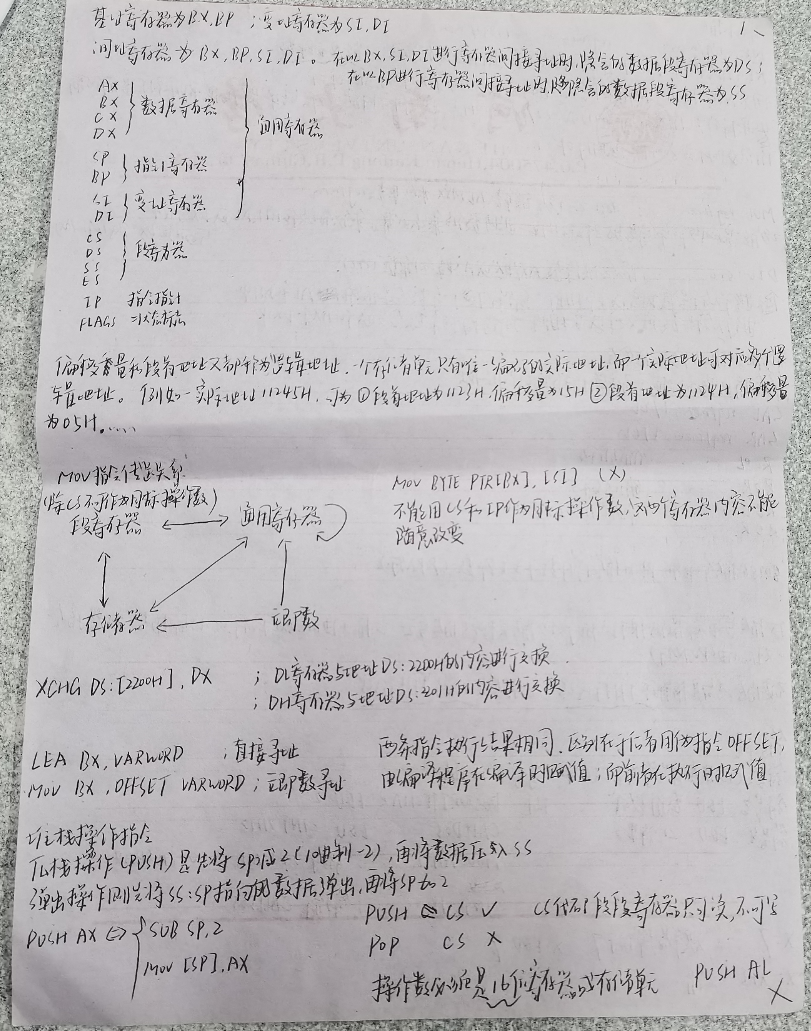 基址寄存器为BX,BP ；变址寄存器为SI,DI
1、
间址寄存器为BX,BP,SI,DI。在以BX,SI,DI进行寄存器间接寻址时,隐含的数据段寄存器为DS；
在以BP进行寄存器间接寻址时,隐含的数据段寄存器为SS
AX
BX
CX
DX
数据寄存器
通用寄存器
SP
BP
指针寄存器
SI
DI
变址寄存器
CS
DS
SS
ES
段寄存器
IP 指令指针
FLAGS 状态标志
偏移量和段首地址又都称为逻辑地址.一个存储单元只有唯一编码的实际地址,而一个实际地址可对应多个逻
辑地址。例如一实际地址11245H,可为①段首地址为1123H,偏移量为15H②段首地址为1124H,偏移量
为05H.....
MOV指令传送关系
(除CS不作为目标操作数)
段寄存器
通用寄存器
存储器
立即数
MOV BYTE PTR[BX],[SI] (X)
不能用CS和IP作为目标操作数,这两个寄存器内容不能
随意改变
XCHG DS:[2200H],DX ；DL寄存器与地址DS:2200H的内容进行交换.
；DH寄存器与地址DS:2201H的内容进行交换
LEA BX,VARWORD ；直接寻址
MOV BX,OFFSET VARWORD；立即数寻址
两条指令执行结果相同.区别在于后者用伪指令OFFSET,
由编译程序在编译时赋值；而前者在执行时赋值
堆栈操作指令
压栈操作(PUSH)是先将SP减2(10进制-2),再将数据压入SS
弹出操作则先将SS:SP指向的数据弹出,再将SP加2
PUSH AX ⇔ SUB SP,2
MOV [SP],AX
PUSH CS ✓ CS代码段段寄存器只可读,不可写
POP CS X
操作数必须是16位寄存器或存储单元 PUSH AL
X